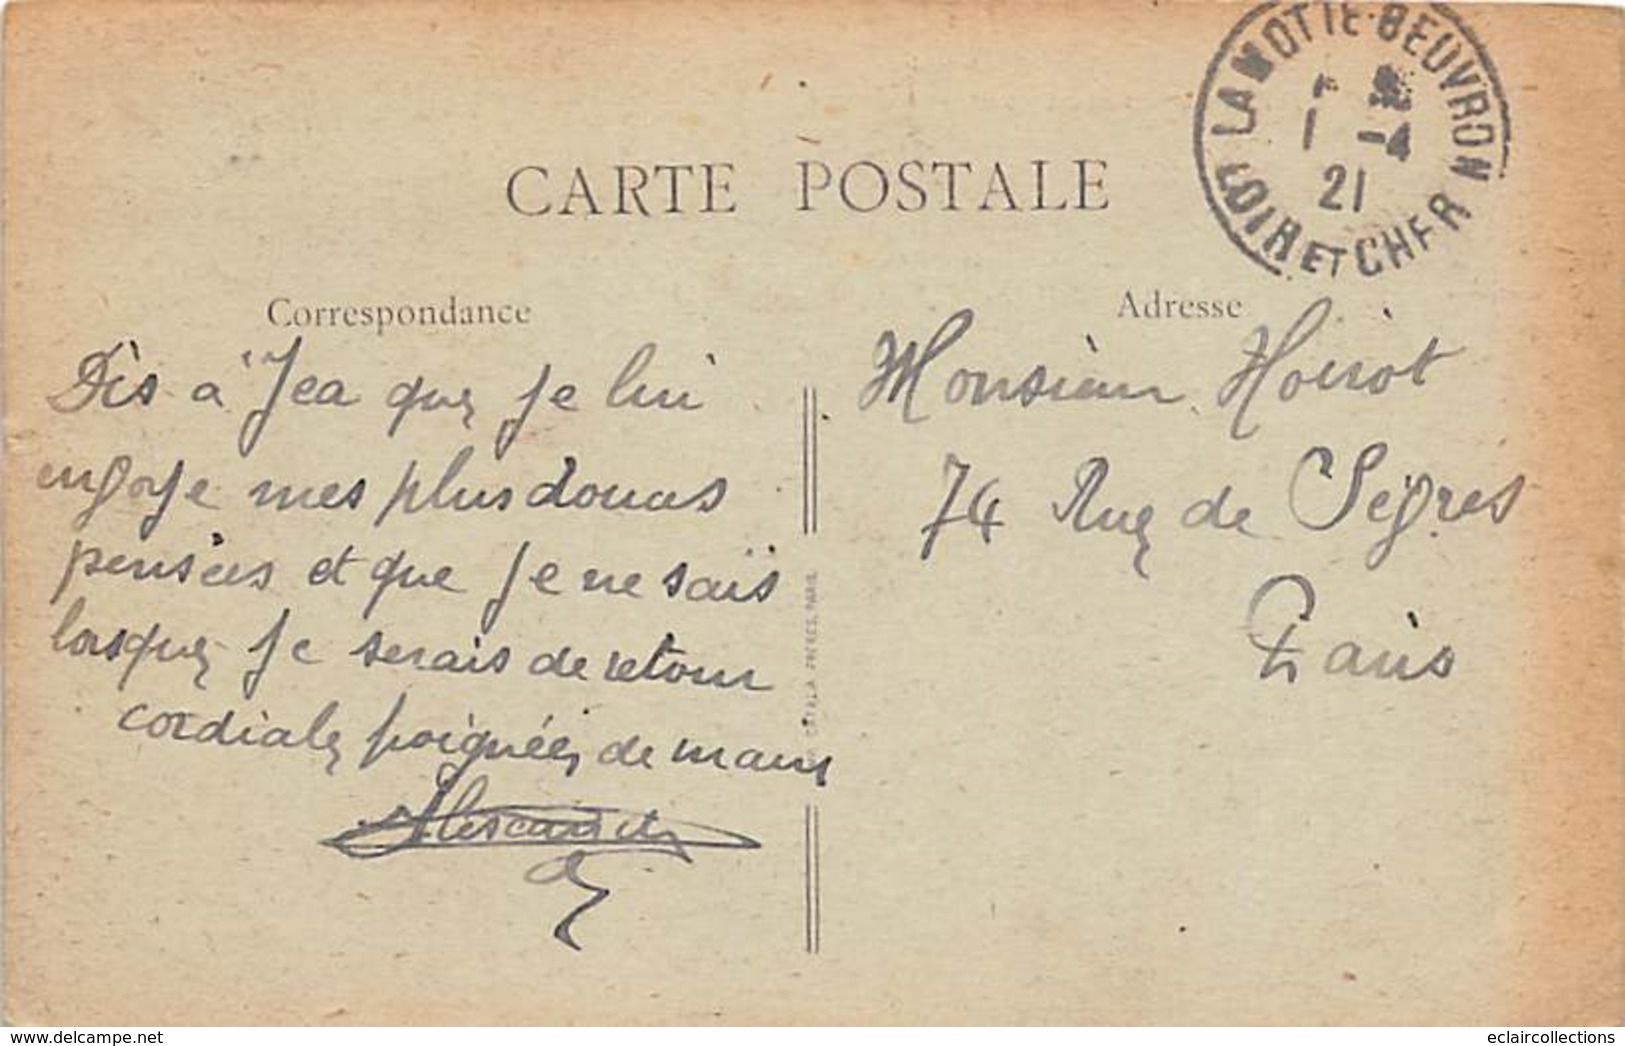 LAMOTTE-BEUVRON
1 -4
21
LOIR ET CHER
CARTE POSTALE
Correspondance
Adresse
Dis à "Jea que je lui
envoye mes plus douces
pensées et que je ne saïs
lorsque je serais de retour
cordiales poignées de mains
Monsieur
74 Rue de Sègres
Paris
www.delcampe.net
eclaircollections